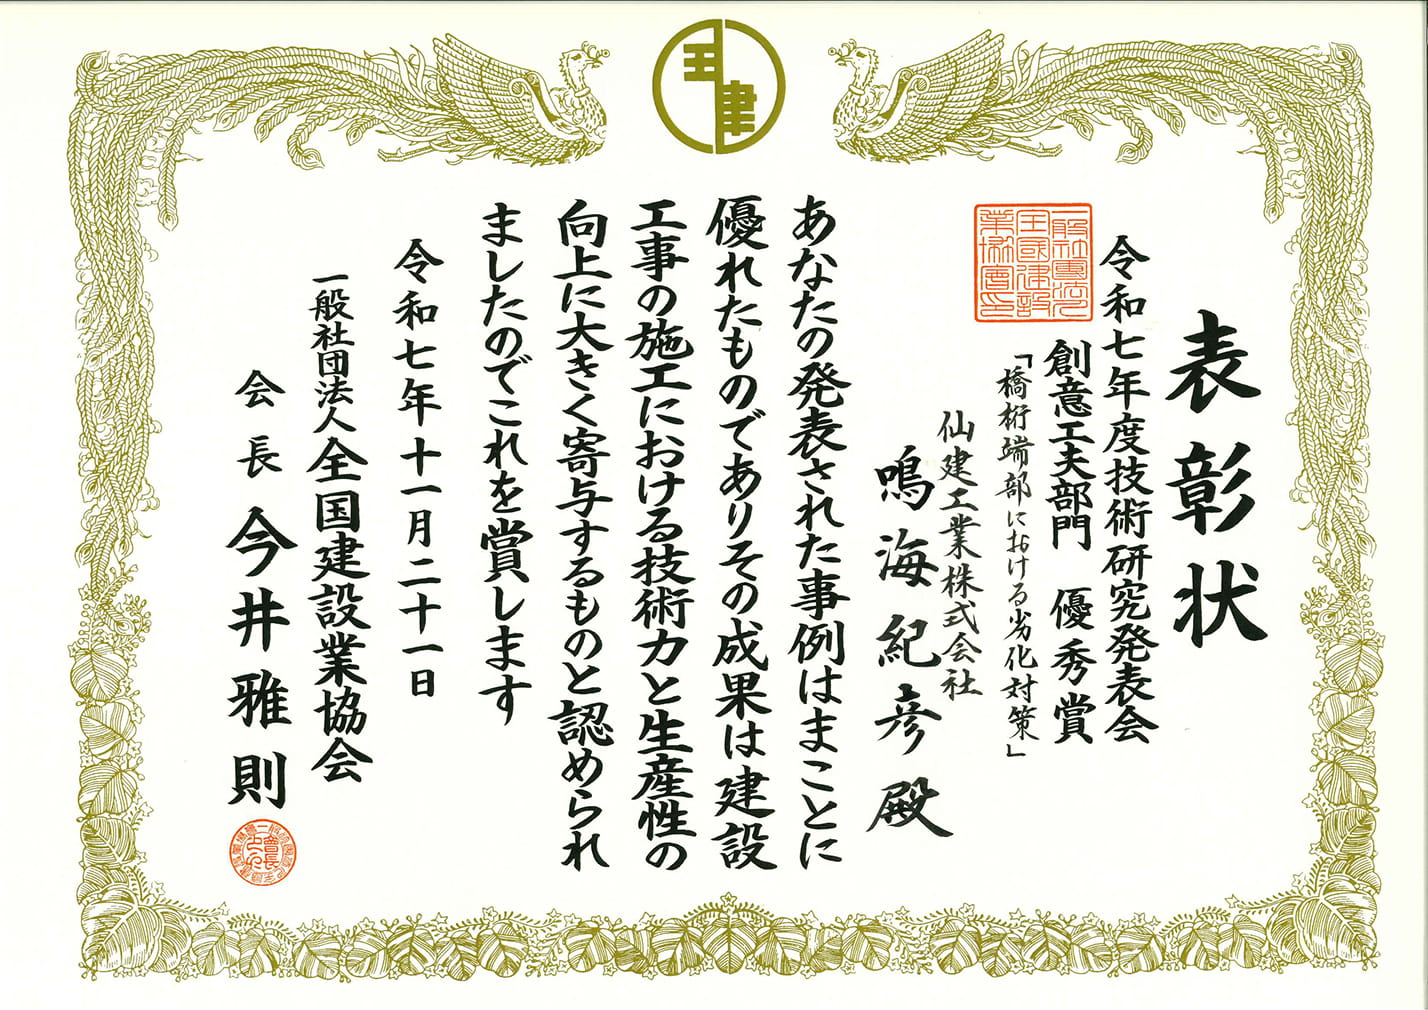 表彰状
令和七年度技術研究発表会
創意工夫部門 優秀賞
「橋桁端部における劣化対策」
仙建工業株式会社
鳴海紀彦殿
あなたの発表された事例はまことに
優れたものでありその成果は建設
工事の施工における技術力と生産性の
向上に大きく寄与するものと認められ
ましたのでこれを賞します
令和七年十一月二十一日
一般社団法人全国建設業協会
会長 今井雅則
一般社團法人
全國建設
業協會之印